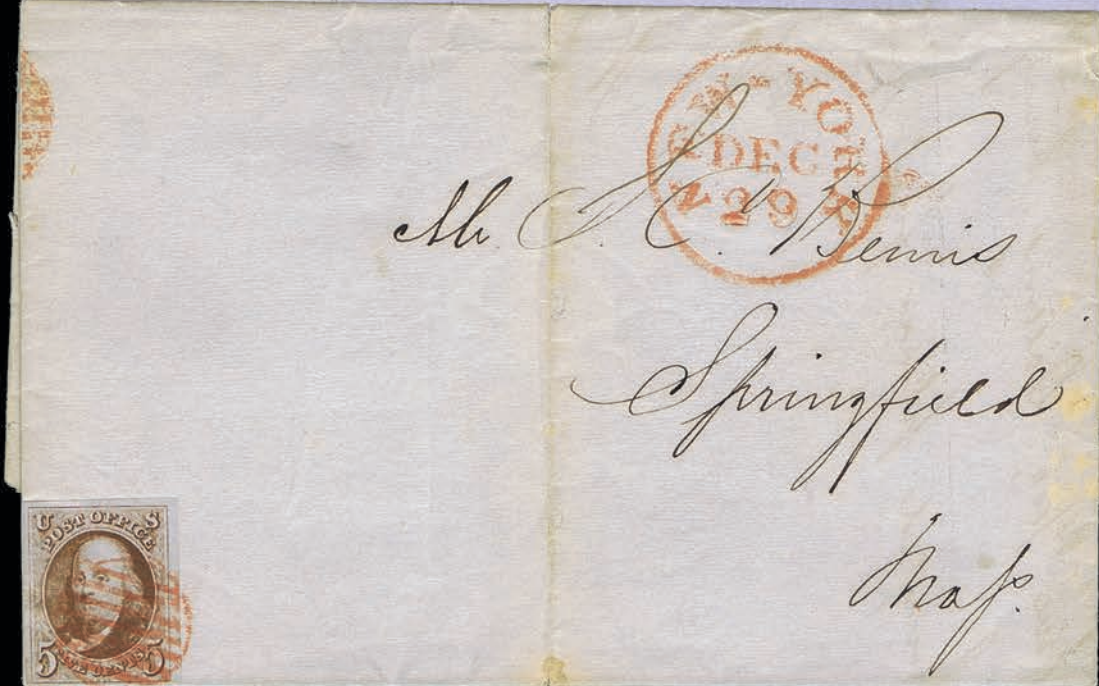 NEW-YORK
DEC
29
Mr. S. C. Bemis
Springfield
Mass.
U S
POST OFFICE
5 FIVE CENTS 5